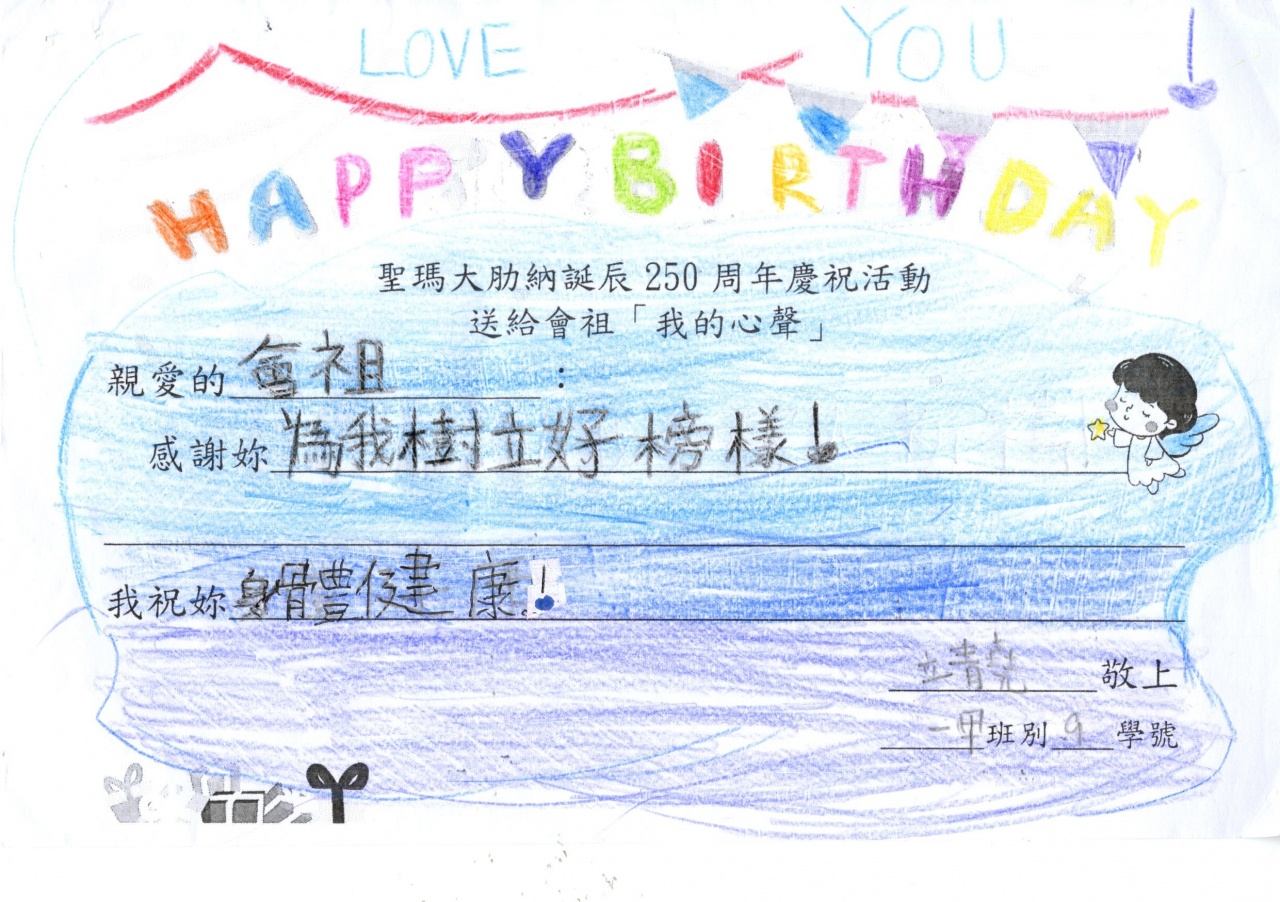 LOVE YOU!
HAPPY BIRTHDAY
聖瑪大肋納誕辰 250 周年慶祝活動
送給會祖「我的心聲」
親愛的會祖：
感謝妳為我樹立好榜樣！
我祝妳身體健康！
敬上
一甲班別 9 學號